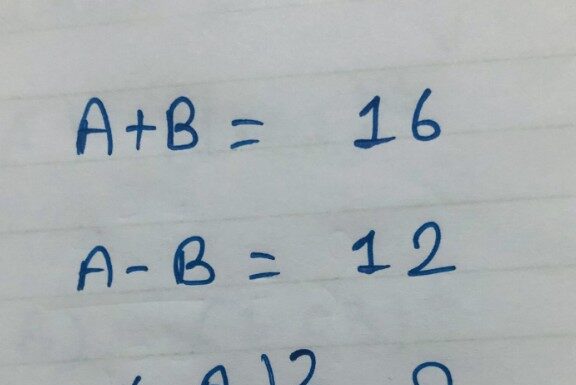 A+B = 16
A- B = 12